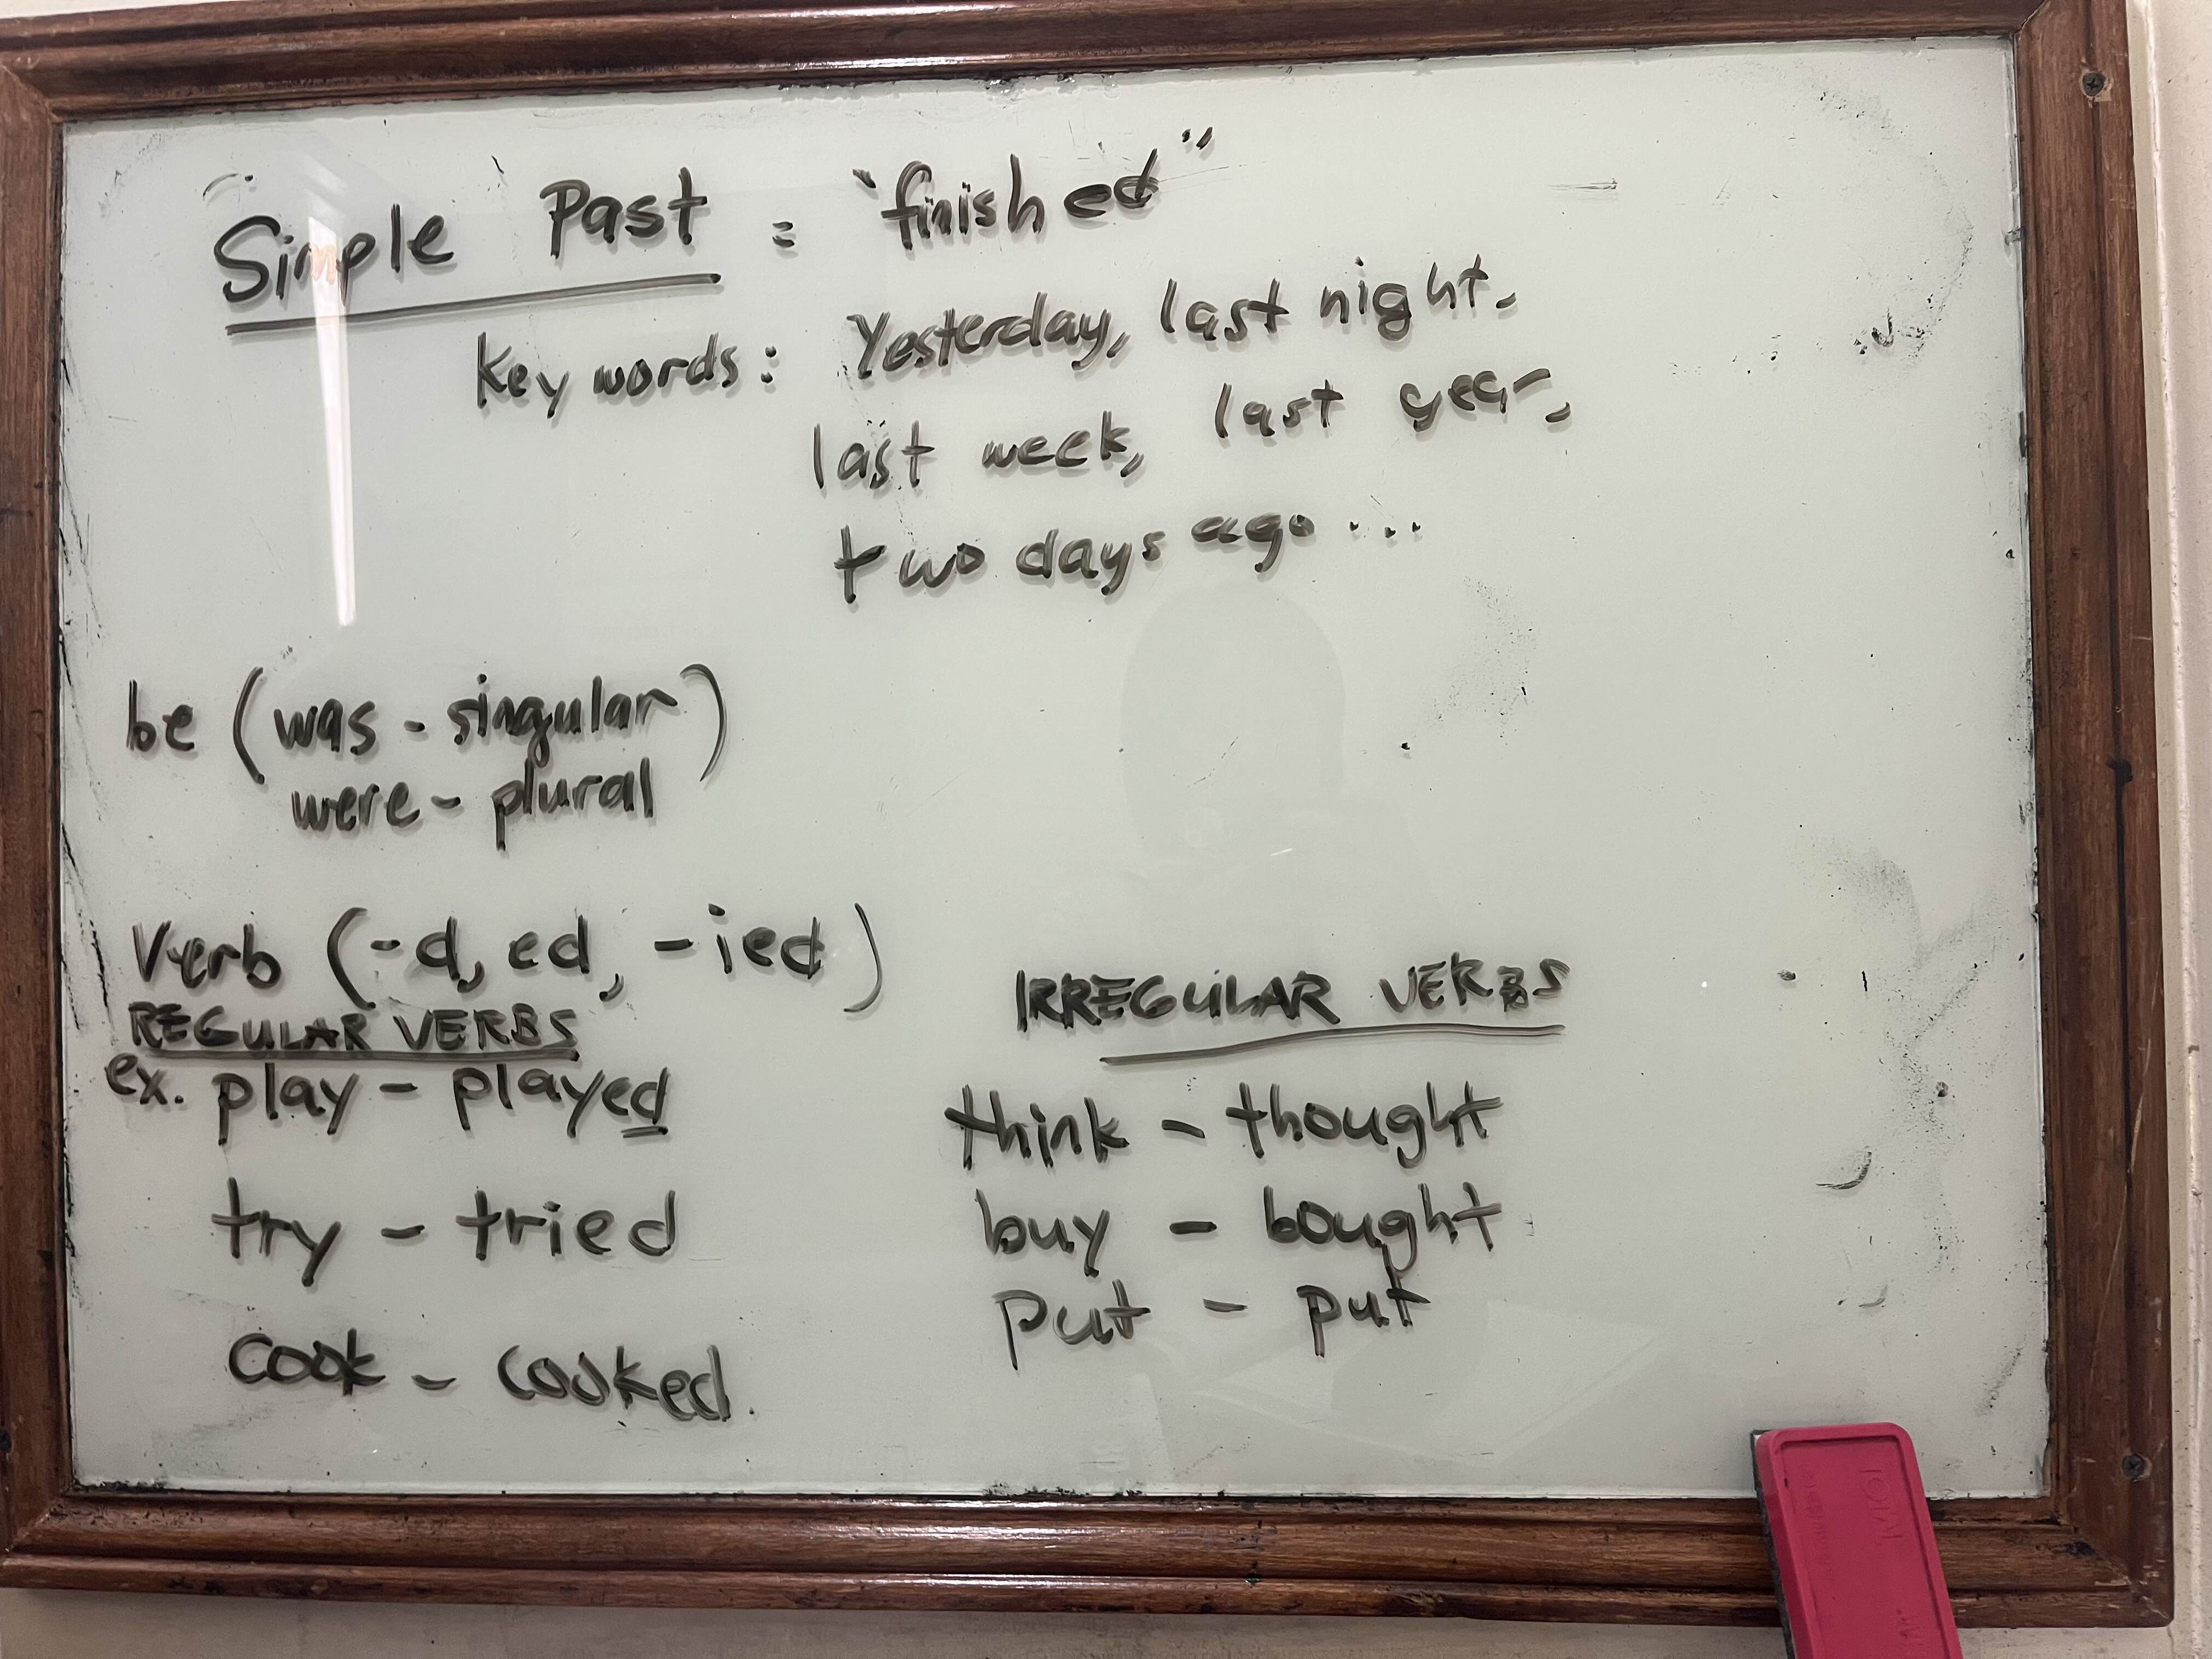 Simple Past = "finished"
Key words: Yesterday, last night,
last week, last year,
two days ago ...
be (was - singular)
were - plural
Verb (-d, ed, -ied)
REGULAR VERBS
ex. play - played
try - tried
cook - cooked.
IRREGULAR VERBS
think - thought
buy - bought
put - put
TOTAL